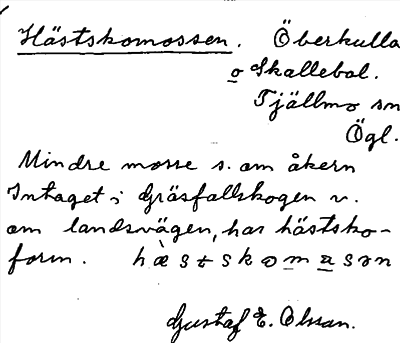 Hästskomossen. Överkulla
o Skallebol.
Tjällmo sn
Ögl.
Mindre mosse s. om åkern
Intaget i Gräsfallskogen v.
om landsvägen, har hästsko-
form. hæ̀stskomasən
Gustaf E. Olsson.